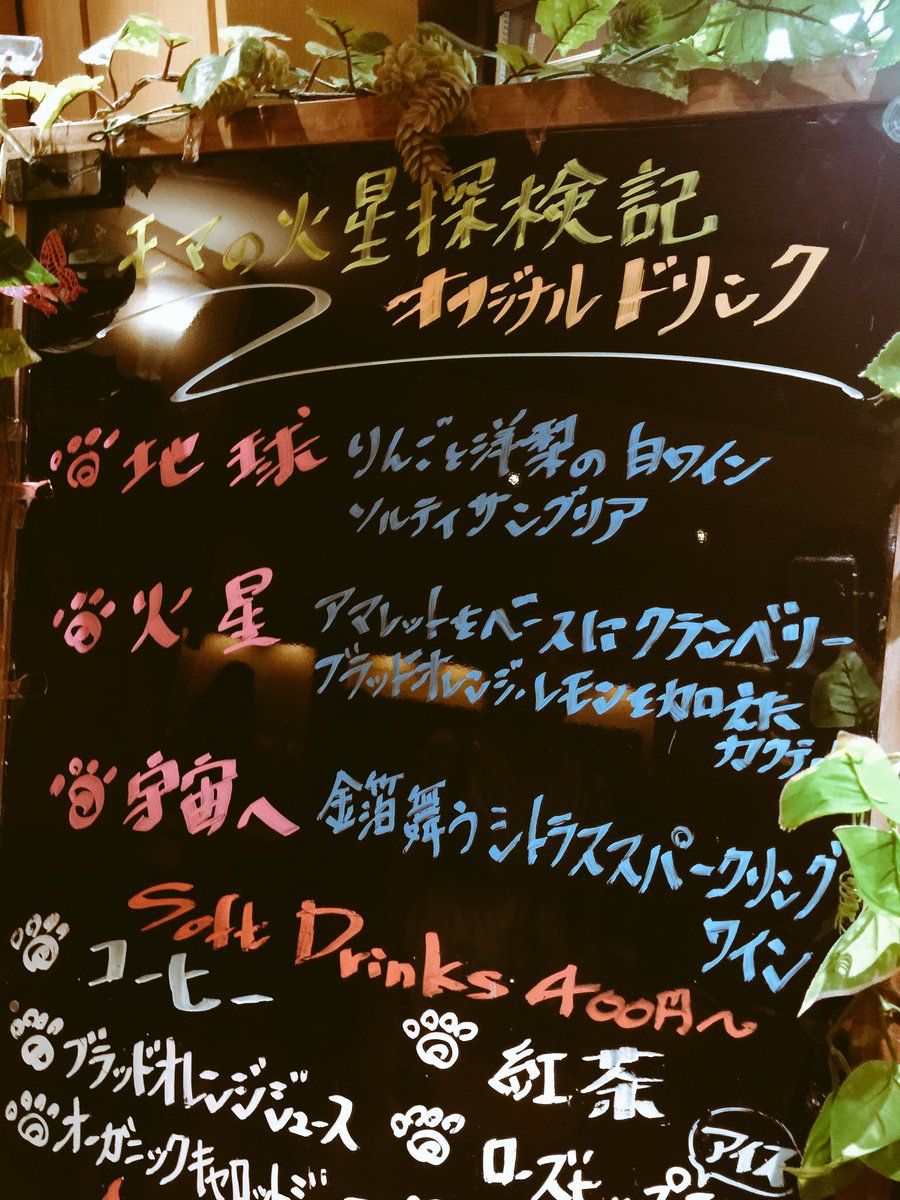 モマの火星探検記
オリジナルドリンク
地球 りんごと洋梨の白ワイン
ソルティサングリア
火星 アマレットをベースにクランベリー
ブラッドオレンジ、レモンを加えた
カクテ
宇宙へ 金箔舞うシトラススパークリング
ワイン
Soft Drinks 400円〜
コーヒー
紅茶
ブラッドオレンジジュース
アイス
ローズヒップ
オーガニックキャロットジ